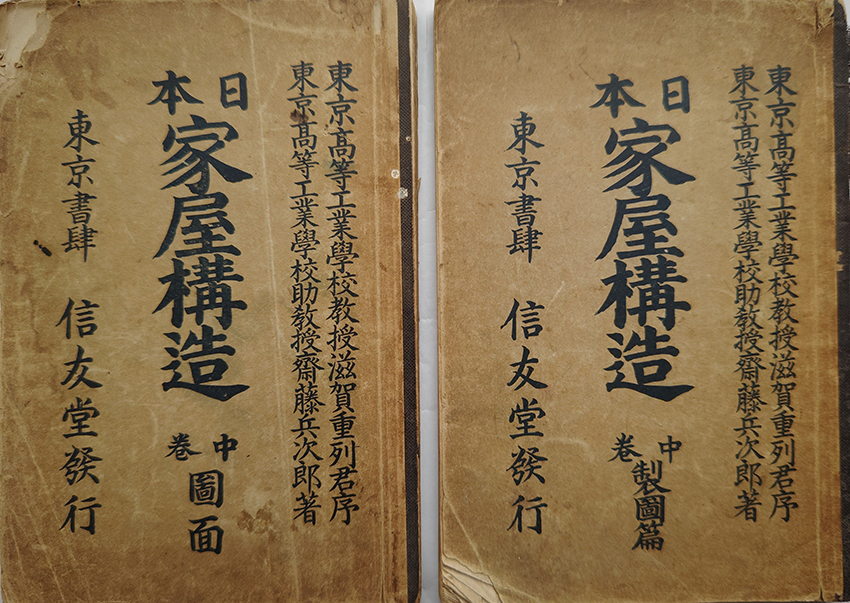 東京高等工業學校教授滋賀重列君序
東京高等工業學校助敎授齋藤兵次郎著
日本
家屋構造
中卷
製圖篇
東京書肆 信友堂發行
東京高等工業學校教授滋賀重列君序
東京高等工業學校助敎授齋藤兵次郎著
日本
家屋構造
中卷
圖面
東京書肆 信友堂發行